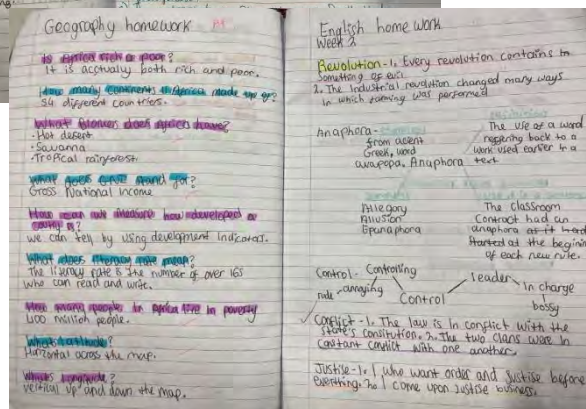 Geography homework
Is Africa rich or poor?
It is acctually both rich and poor.
How many continents is Africa made up of?
54 different countries.
What Biomes does Africa have?
• Hot desert
• Savanna
• Tropical rainforest
What does GNI stand for?
Gross National Income
How can we measure how developed a
is?
we can tell by using development indicators.
What does literacy rate mean?
The literacy rate is the number of over 16s
who can read and write.
How many people in Africa live in poverty
400 million people.
What is latitude?
Horizontal across the map.
What is longitude?
Vertical up and down the map.
English home work
Week 2
Revolution - 1. Every revolution contains in
Something of evil.
2. The Industrial revolution changed many ways
in which farming was performed
definition
Anaphora -
from
Greek, word
Anaphora
The use of a word
reffering back to a
used earlier in a
text
Allegory
Allusion
Epanaphora
The classroom
Contract had an
anaphora as it
started at the
of each new rule.
Control - Controlling
rude - annoying
Control
leader - In charge
bossy
Conflict - 1. The law is in conflict with the
state's consitution. 2. The two clans were in
conflict with one another.
Justise - 1. I who want order and justise before
everything. 2. I come upon justise business.